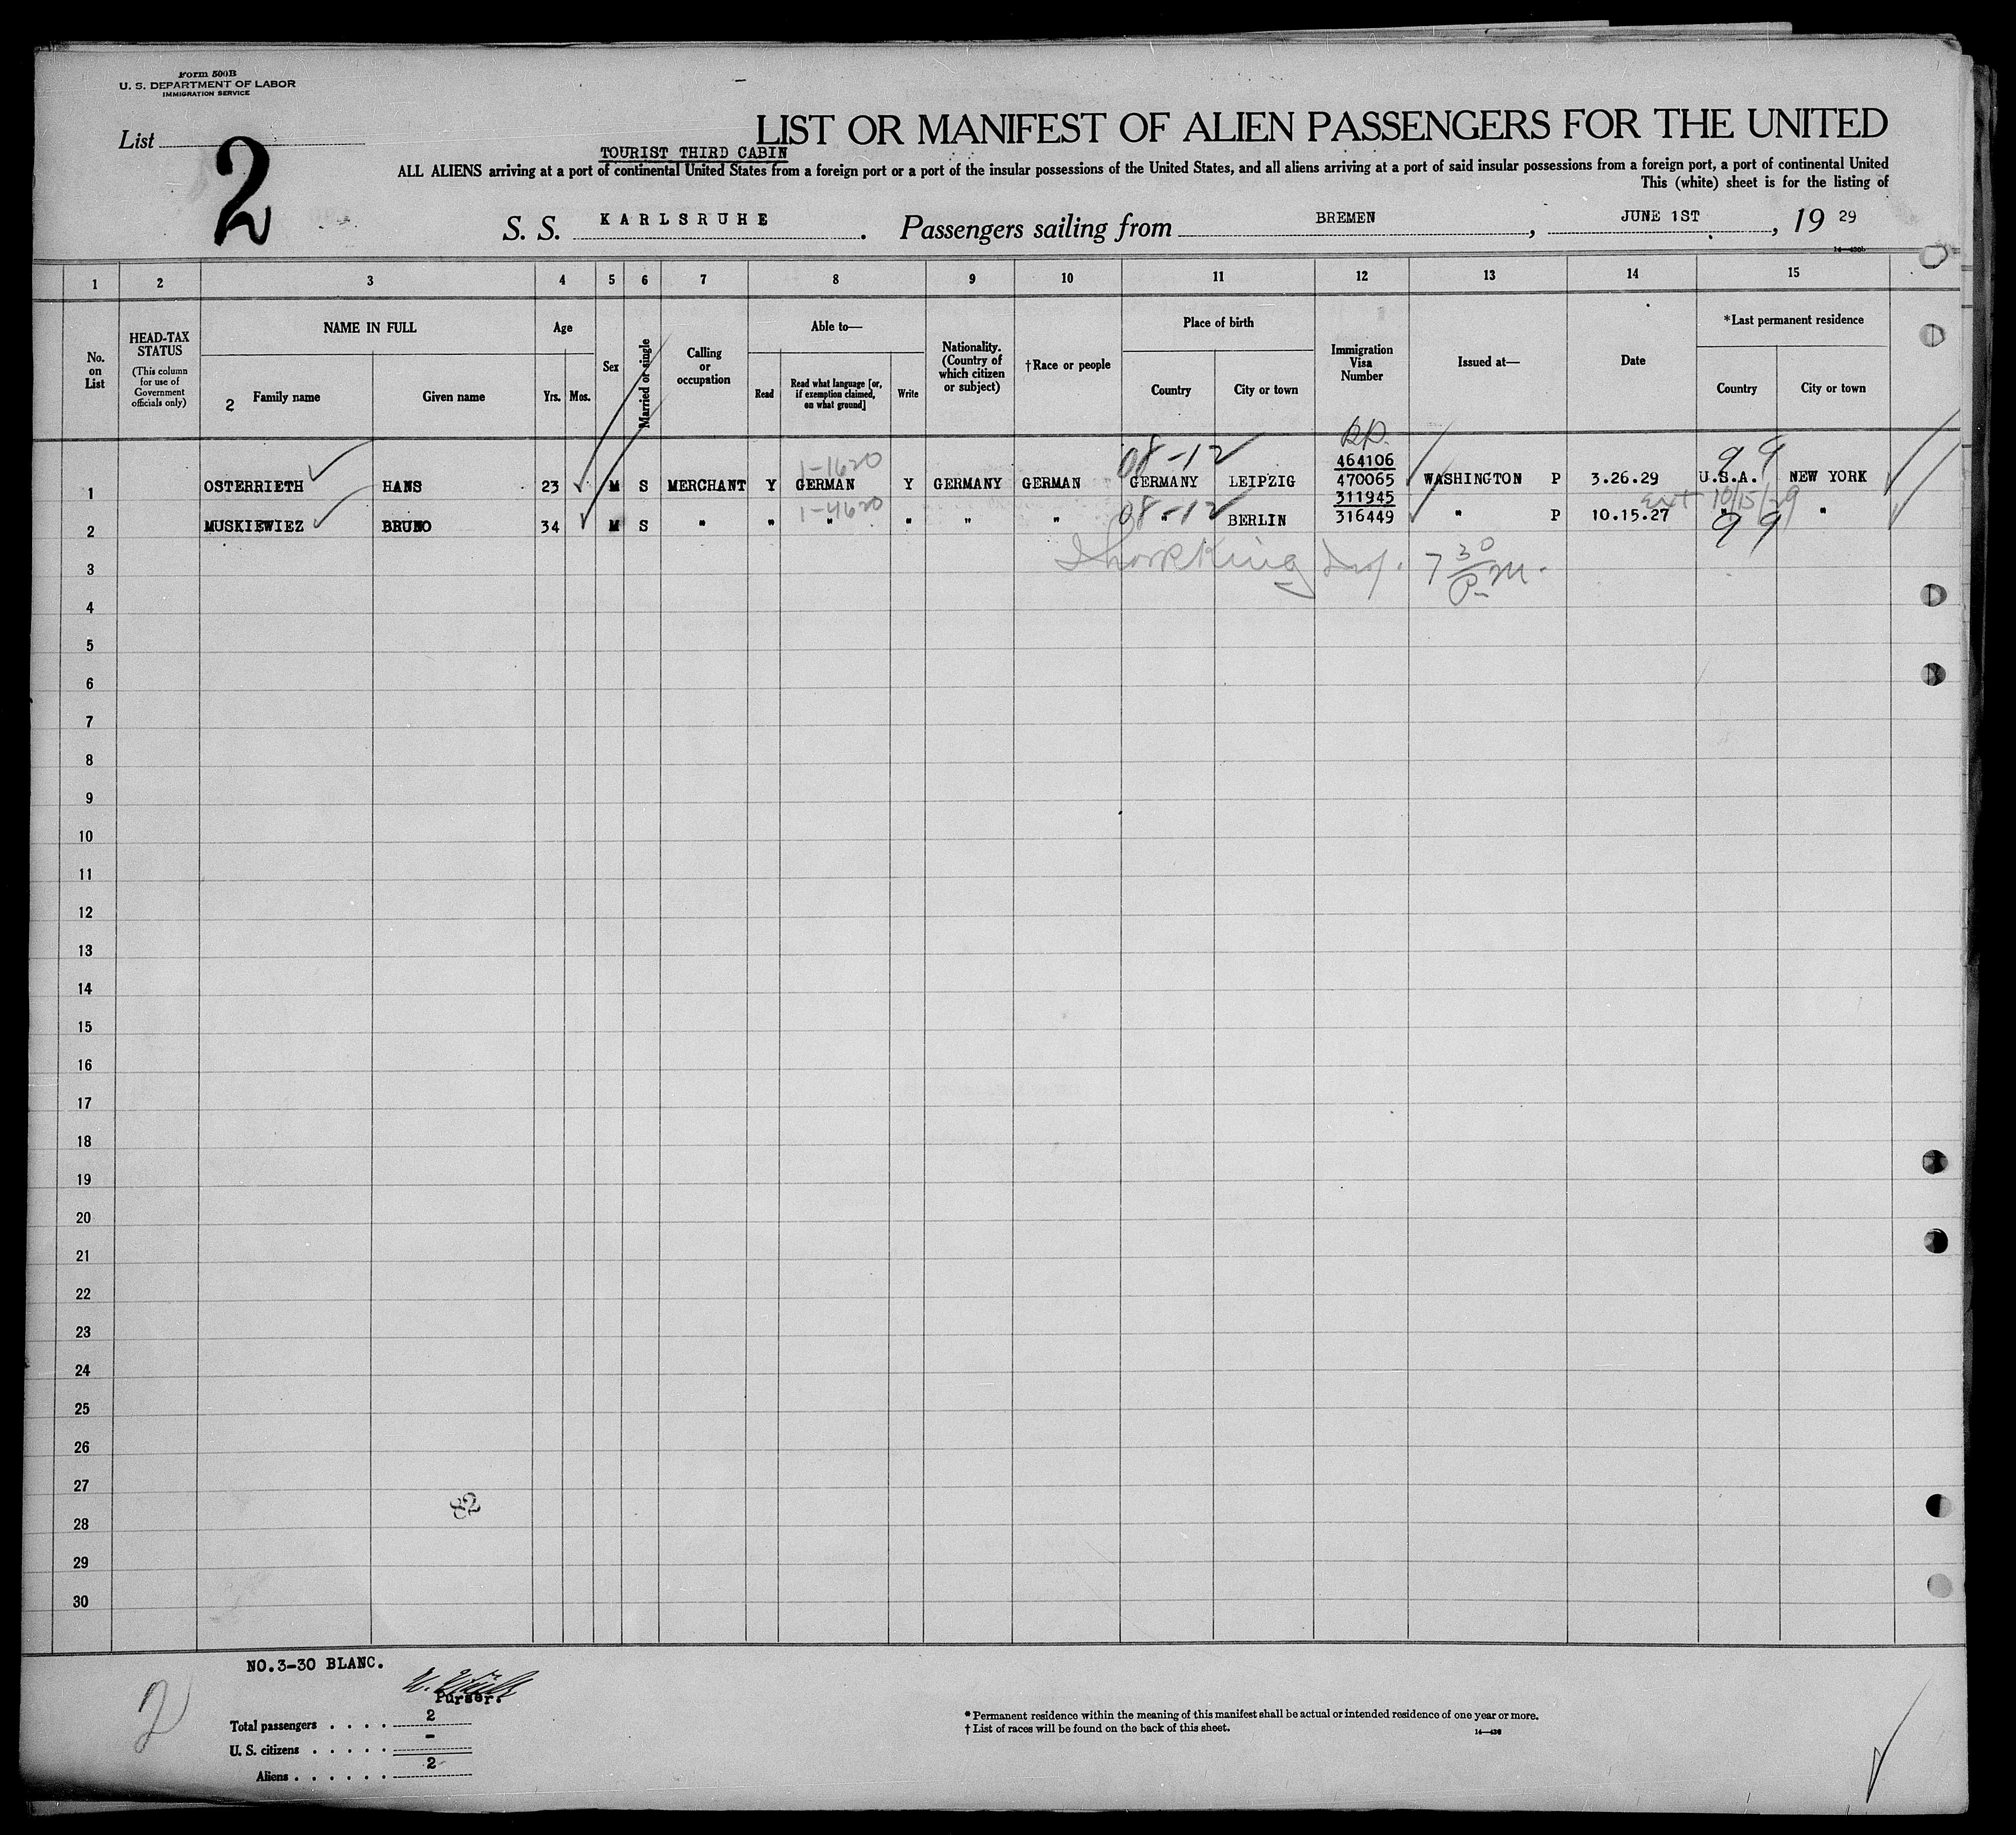 Form 500B
U. S. DEPARTMENT OF LABOR
IMMIGRATION SERVICE
List
2
LIST OR MANIFEST OF ALIEN PASSENGERS FOR THE UNITED
TOURIST THIRD CABIN
ALL ALIENS arriving at a port of continental United States from a foreign port or a port of the insular possessions of the United States, and all aliens arriving at a port of said insular possessions from a foreign port, a port of continental United
This (white) sheet is for the listing of
S. S. KARLSRUHE. Passengers sailing from BREMEN, JUNE 1ST, 19 29
1 2 3 4 5 6 7 8 9 10 11 12 13 14 15
No. on List
HEAD-TAX STATUS
(This column for use of Government officials only)
NAME IN FULL
2 Family name
Given name
Age
Yrs. Mos.
Sex
Married or single
Calling or occupation
Able to—
Read
Read what language [or, if exemption claimed, on what ground]
Write
Nationality. (Country of which citizen or subject)
†Race or people
Place of birth
Country
City or town
Immigration Visa Number
Issued at—
Date
*Last permanent residence
Country
City or town
RP.
1-1620 08-12 464106 99
1 OSTERRIETH HANS 23 M S MERCHANT Y GERMAN Y GERMANY GERMAN GERMANY LEIPZIG 470065 WASHINGTON P 3.26.29 U.S.A. NEW YORK
1-4620 08-12 311945 Ext 10/15/29
2 MUSKIEWIEZ BRUNO 34 M S " " " " " " " BERLIN 316449 " P 10.15.27 " "
99
7 30 P.M.
3
4
5
6
7
8
9
10
11
12
13
14
15
16
17
18
19
20
21
22
23
24
25
26
27
82
28
29
30
NO.3-30 BLANC.
2
Purser.
Total passengers . . . . 2
U. S. citizens . . . . . -
Aliens . . . . . . 2
* Permanent residence within the meaning of this manifest shall be actual or intended residence of one year or more.
† List of races will be found on the back of this sheet.